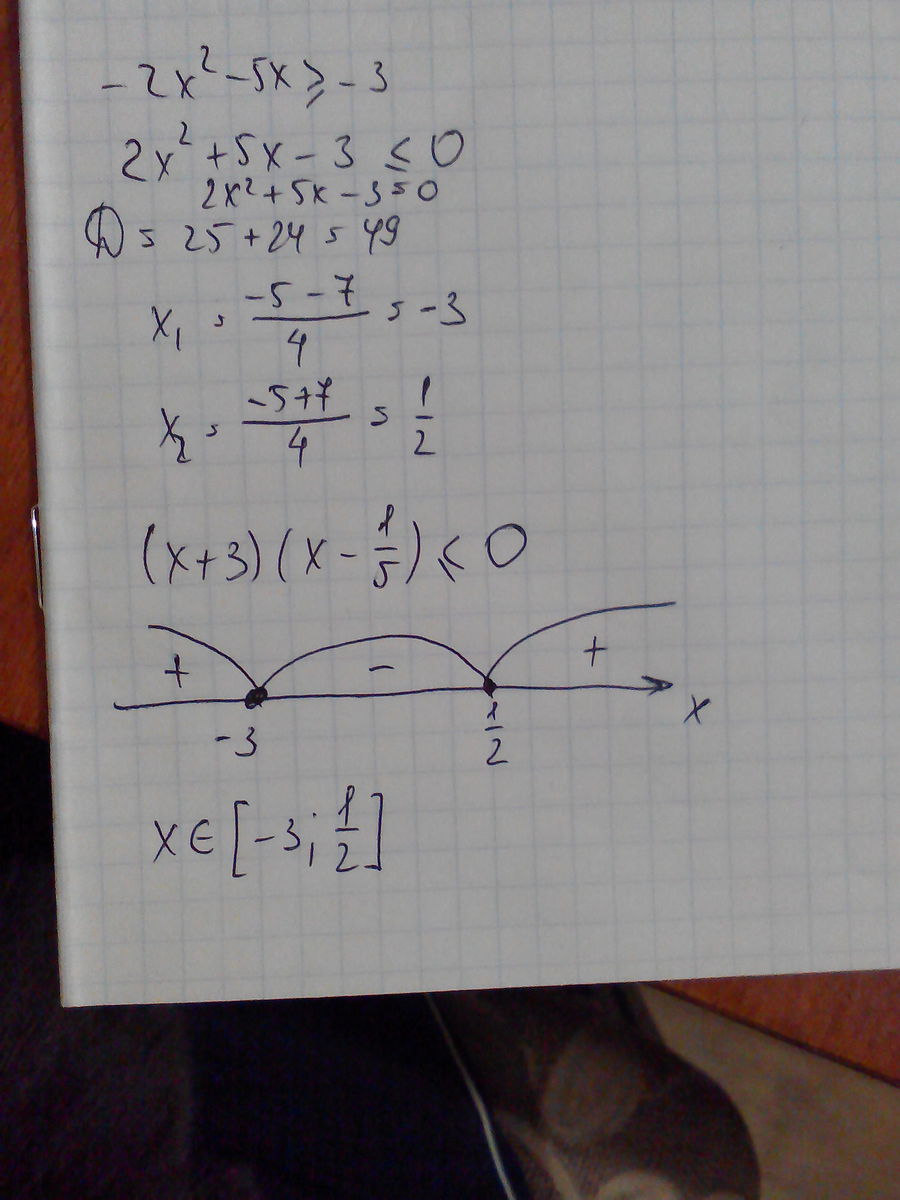 -2x² -5x ⩾ -3
2x² + 5x - 3 ⩽ 0
2x² + 5x - 3 = 0
D = 25 + 24 = 49
x₁ = (-5 - 7)/4 = -3
x₂ = (-5+7)/4 = 1/2
(x+3)(x - 1/5) ⩽ 0
+ - +
-3 1/2 x
x ∈ [-3; 1/2]